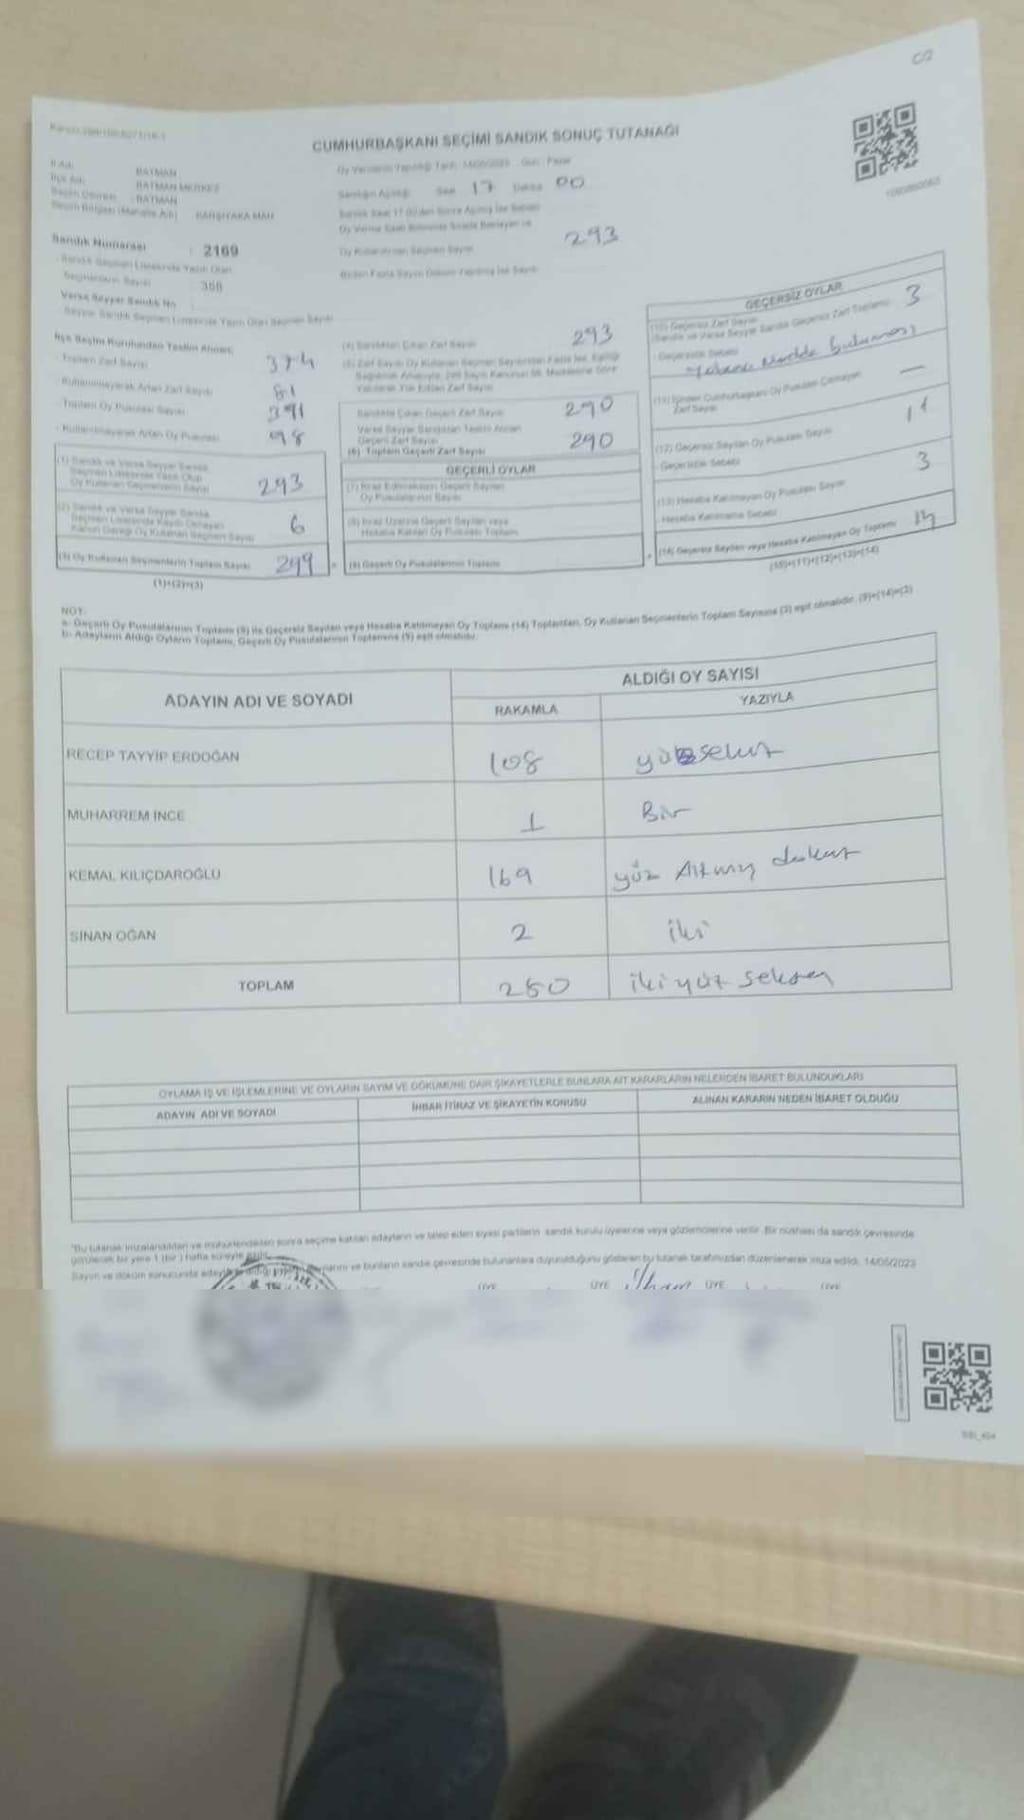 C/2
CUMHURBAŞKANI SEÇİMİ SANDIK SONUÇ TUTANAĞI
İl Adı : BATMAN
İlçe Adı : BATMAN MERKEZ
Seçim Çevresi : BATMAN
Seçim Bölgesi (Mahalle Adı) : KARŞIYAKA MAH
Oy Vermenin Yapıldığı Tarih : 14/05/2023 Gün : Pazar
Sandığın Açıldığı Saat 17 Dakika 00
Sandık Saat 17.00'den Sonra Açılmış İse Sebebi
Sandık Numarası : 2169
Sandık Seçmen Listesinde Yazılı Olan
Seçmenlerin Sayısı 358
Oy Kullandırılan Seçmen Sayısı 293
Birden Fazla Sayım Döküm Yapılmış İse Sayısı
Varsa Seyyar Sandık No :
Seyyar Sandık Seçmen Listesinde Yazılı Olan Seçmen Sayısı
İlçe Seçim Kurulundan Teslim Alınan;
- Toplam Zarf Sayısı 374
- Kullanılmayarak Artan Zarf Sayısı 81
- Toplam Oy Pusulası Sayısı 391
- Kullanılmayarak Artan Oy Pusulası 98
(1) Sandık ve Varsa Seyyar Sandık
Seçmen Listesinde Yazılı Olup
Oy Kullanan Seçmenlerin Sayısı 293
(2) Sandık ve Varsa Seyyar Sandık
Seçmen Listesinde Kaydı Olmayan
Kanun Gereği Oy Kullanan Seçmen Sayısı 6
(3) Oy Kullanan Seçmenlerin Toplam Sayısı 299
(1)+(2)=(3)
(4) Sandıktan Çıkan Zarf Sayısı 293
Sandıkta Çıkan Geçerli Zarf Sayısı 290
Varsa Seyyar Sandıktan Teslim Alınan
Geçerli Zarf Sayısı
(6) Toplam Geçerli Zarf Sayısı 290
GEÇERLİ OYLAR
(7) İtiraz Edilmeksizin Geçerli Sayılan
Oy Pusulalarının Sayısı
(8) İtiraz Üzerine Geçerli Sayılan veya
Hesaba Katılan Oy Pusulası Toplamı
(9) Geçerli Oy Pusulalarının Toplamı
GEÇERSİZ OYLAR
(10) Geçersiz Zarf Sayısı
(Sandık ve Varsa Seyyar Sandık Geçersiz Zarf Toplamı) 3
- Geçersizlik Sebebi
Yabancı Madde bulunması
(11) İçinden Cumhurbaşkanı Oy Pusulası Çıkmayan
Zarf Sayısı —
(12) Geçersiz Sayılan Oy Pusulası Sayısı 11
- Geçersizlik Sebebi
3
(13) Hesaba Katılmayan Oy Pusulası Sayısı
- Hesaba Katılmama Sebebi
(14) Geçersiz Sayılan veya Hesaba Katılmayan Oy Toplamı
(10)+(11)+(12)+(13)=(14)
NOT:
a- Geçerli Oy Pusulalarının Toplamı (9) ile Geçersiz Sayılan veya Hesaba Katılmayan Oy Toplamı (14) Toplamları, Oy Kullanan Seçmenlerin Toplam Sayısına (3) eşit olmalıdır. (9)+(14)=(3)
b- Adayların Aldığı Oyların Toplamı, Geçerli Oy Pusulalarının Toplamına (9) eşit olmalıdır.
ADAYIN ADI VE SOYADI
ALDIĞI OY SAYISI
RAKAMLA YAZIYLA
RECEP TAYYİP ERDOĞAN 108 yüzsekiz
MUHARREM İNCE 1 Bir
KEMAL KILIÇDAROĞLU 169 yüz Altmış dokuz
SİNAN OĞAN 2 iki
TOPLAM 280 ikiyüz seksen
OYLAMA İŞ VE İŞLEMLERİNE VE OYLARIN SAYIM VE DÖKÜMÜNE DAİR ŞİKAYETLERLE BUNLARA AİT KARARLARIN NELERDEN İBARET BULUNDUKLARI
ADAYIN ADI VE SOYADI İHBAR İTİRAZ VE ŞİKAYETİN KONUSU ALINAN KARARIN NEDEN İBARET OLDUĞU
*Bu tutanak imzalandıktan ve mühürlendikten sonra seçime katılan adayların ve talep eden siyasi partilerin sandık kurulu üyelerine veya gözlemcilerine verilir. Bir nüshası da sandık çevresinde
görülecek bir yere 1 (bir) hafta süreyle asılır.
Sayım ve döküm sonucunda adayların aldığı oyların ve bunların sandık çevresinde bulunanlara duyurulduğunu gösteren bu tutanak tarafımızdan düzenlenerek imza edildi. 14/05/2023
ÜYE ÜYE ÜYE ÜYE